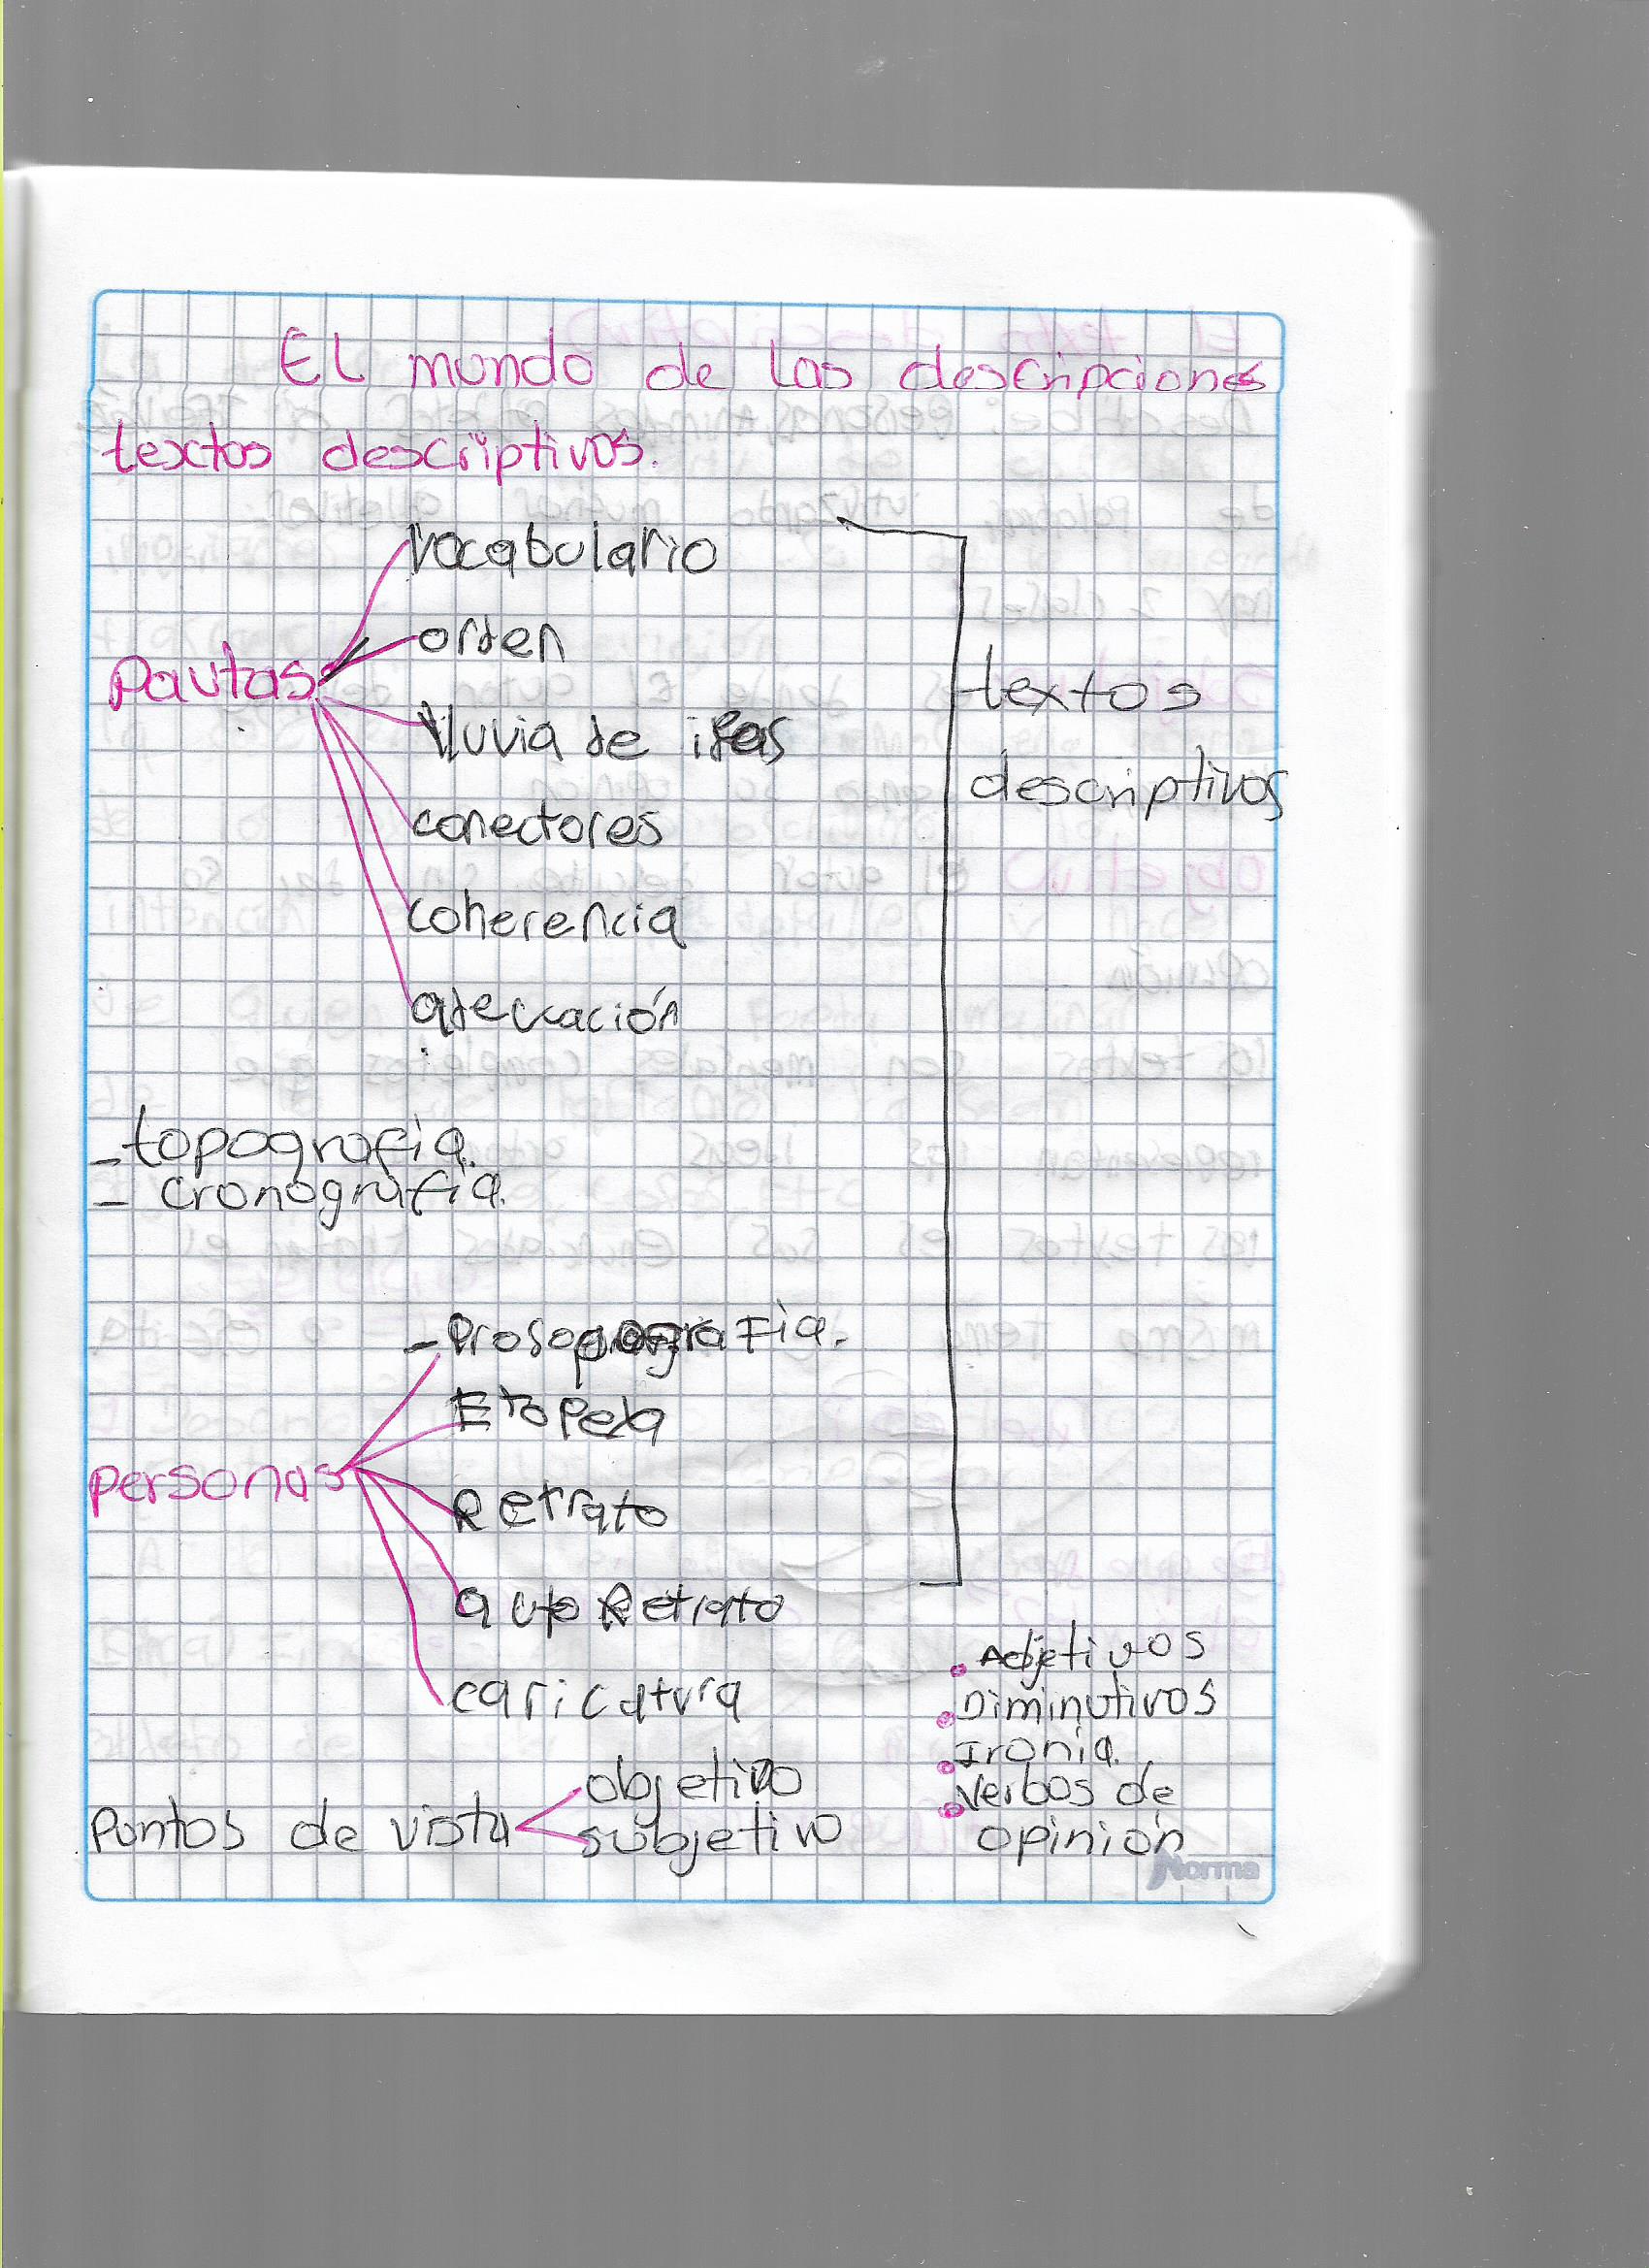 El mundo de las descripciones
textos descriptivos.
Pautas
vocabulario
orden
lluvia de ideas
conectores
coherencia
adecuación
textos
descriptivos
- topografia.
- cronografia.
personas
- Prosopografia.
Etopeya
Retrato
auto Retrato
caricatura
Puntos de vista
objetivo
subjetivo
• Adjetivos
• Diminutivos
• Ironía.
• Verbos de
opinión
Norma